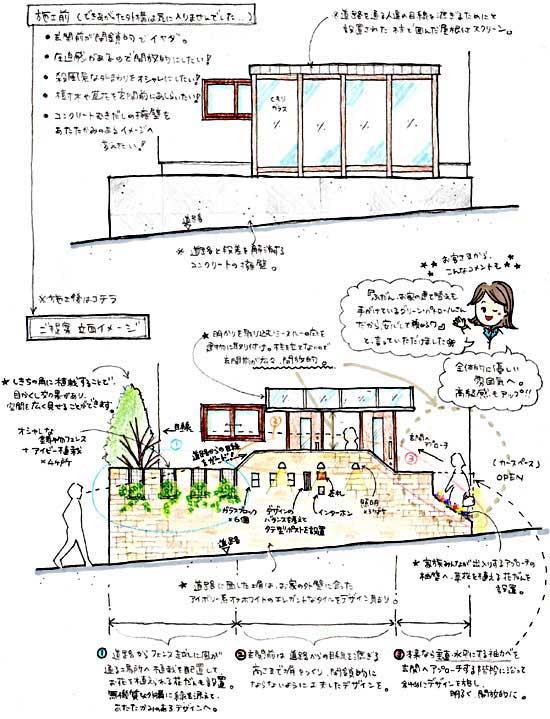 施工前（できあがった外構は気に入りませんでした…）
● 玄関前が閉鎖的でイヤダ。
● 圧迫感があるので開放的にしたい！
● 殺風景な外まわりをオシャレにしたい！
● 植木や草花を玄関前にあしらいたい！
● コンクリートむきだしの擁壁を
あたたかみのあるイメージへ
変えたい！
※道路を通る人達の目線を遮ぎるためにと
設置された 枠で囲んだ屋根付スクリーン。
くもり
ガラス
道路
※ 道路と段差を解消する
コンクリートの擁壁。
※施工後はコチラ
ご提案 立面イメージ
お客さまから、
こんなコメントも
「ふだん、お家の建て替えも
手がけているグリーンパトロールさん
だから安心して頼めるワ」
と言っていただけました
全体的に優しい
雰囲気へ。
高級感もアップ!!
★明かりを取り込むスルー屋根を
建物に取り付け。柱も立てないので
玄関前が広々、開放的。
★しきちの角に植栽することで、
目かくし効果があり、
空間も広く見せることができます。
オシャレな
鋳物フェンス
+ アイビー植栽
×4ヶ所
目線
①
②
③
道路からの目線
をガード！
玄関へ
アプローチ
（カースペース）
OPEN
ガラスブロック
×6個
デザインの
バランスを考えて
タテ型ポストを設置
インターホン
表札
照明
×3ヶ所
道路
★ 道路に面した塀は、お家の外壁に合った
アイボリー系オフホワイトのエレガントなタイルをデザイン貼り。
★ 家族みんなが出入りするアプローチの
袖壁へ、草花を植える花だんを
設置。
① 道路からフェンス越しに風が
通る場所へ植栽を配置して、
お花も植えられる花だんを設置。
無機質な外構に緑を添えて、
あたたかみのあるデザインへ。
② 玄関前は 道路からの目線を遮ぎる
高さまで塀をつくり、閉鎖的に
ならないように工夫したデザインを。
③ 本来なら垂直・水平にする袖カベを
玄関へアプローチする階段に沿って
斜めにデザインを施し、
明るく開放的に。